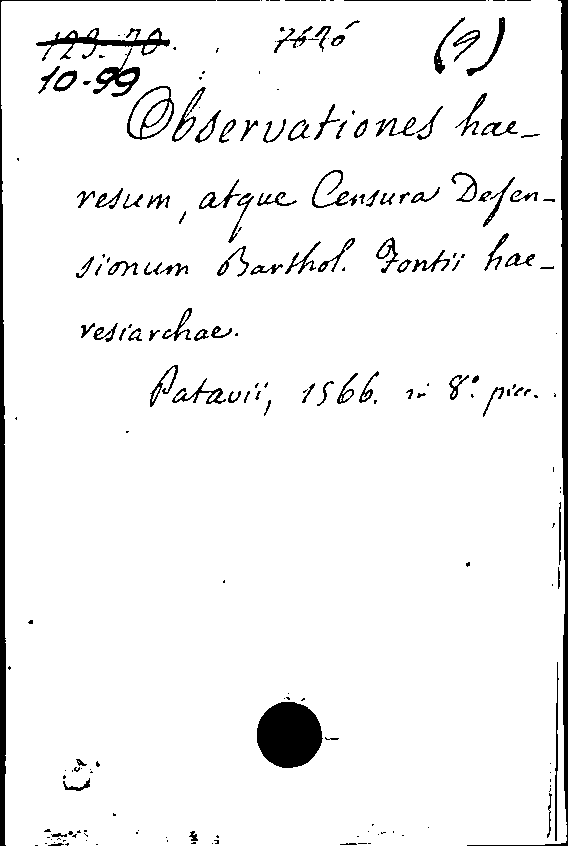 123-70. 7676 (9)
10-99
Observationes hae-
resum, atque Censura Defen-
sionum Barthol. Fontii hae-
resiarchae.
Patavii, 1566. in 8.° picc.